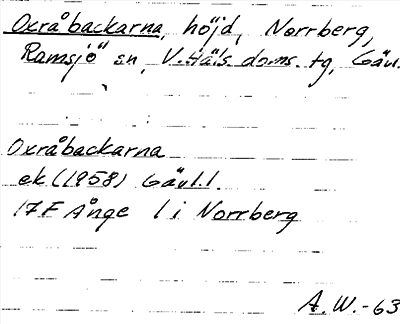 Oxråbackarna, höjd, Norrberg,
Ramsjö sn, V. Häls. doms. tg, Gävl.
Oxråbackarna
ek (1958) Gävl. l.
17F Ånge 1 i Norrberg
A. W. - 63